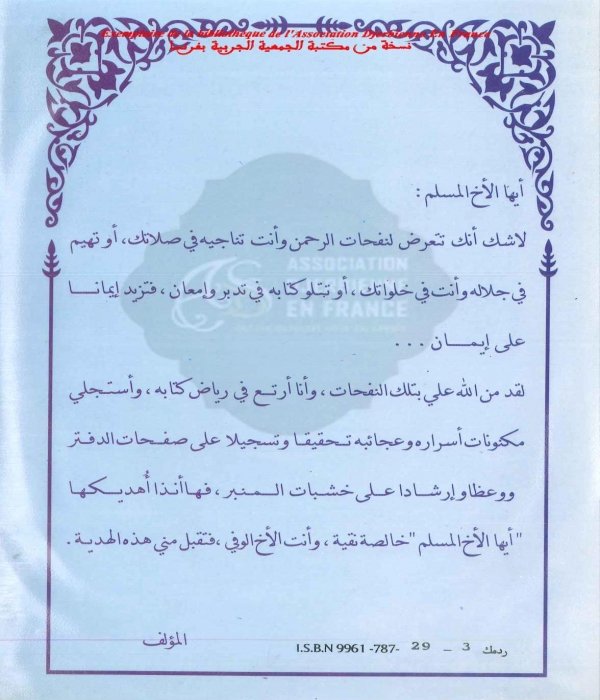 Exemplaire de la bibliothèque de l'Association Djerbienne En France
نسخة من مكتبة الجمعية الجربية بفرنسا
أيها الأخ المسلم :
لاشك أنك تتعرض لنفحات الرحمن وأنت تناجيه في صلاتك، أو تهيم
في جلاله وأنت في خلواتك ، أو تتلو كتابه في تدبر وإمعان ، فتزيد إيمانا
على إيمان ...
لقد من الله علي بتلك النفحات ، وأنا أرتع في رياض كتابه ، وأستجلي
مكنونات أسراره وعجائبه تحقيقا وتسجيلا على صفحات الدفتر
ووعظا وإرشادا على خشبات المنبر ، فهاأنذا أُهديكها
"أيها الأخ المسلم" خالصة نقية ، وأنت الأخ الوفي ، فتقبل مني هذه الهدية .
المؤلف
ردمك I.S.B.N 9961 -787- 29 – 3
ASSOCIATION
EN FRANCE